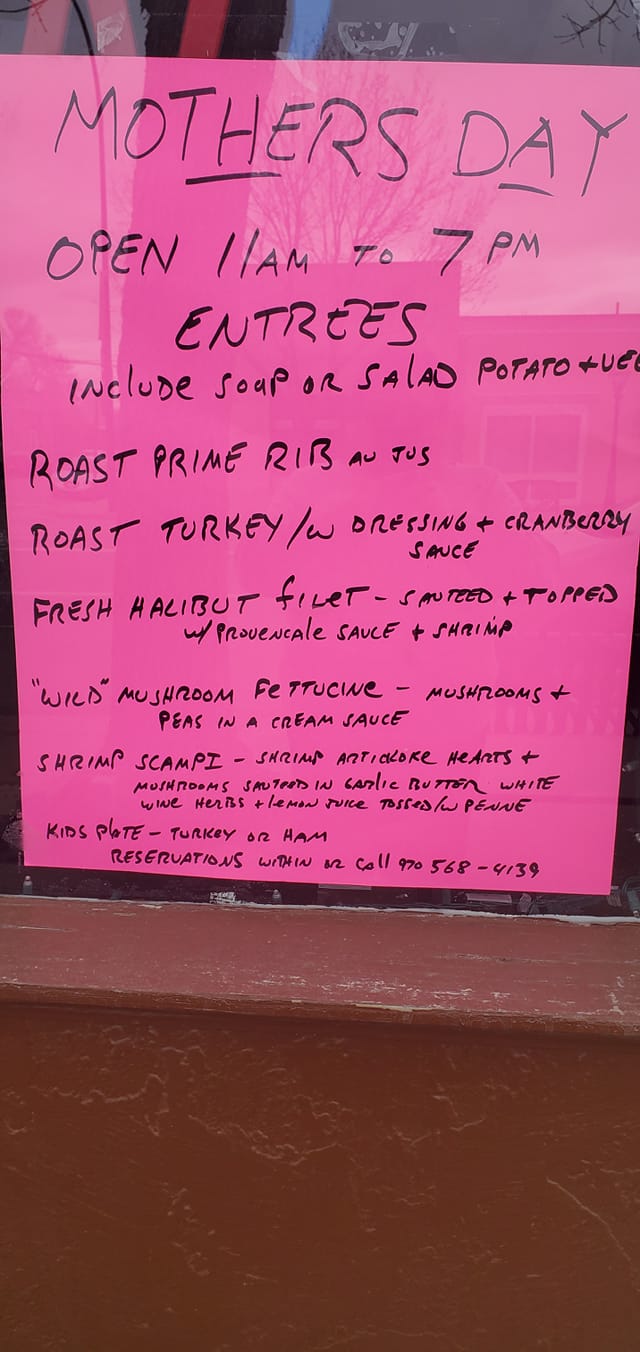 MOTHERS DAY
OPEN 11AM TO 7 PM
ENTREES
INCLUDE SOUP OR SALAD POTATO + VEG
ROAST PRIME RIB AU JUS
ROAST TURKEY /W DRESSING + CRANBERRY
SAUCE
FRESH HALIBUT FILET - SAUTEED + TOPPED
W/ PROVENCALE SAUCE + SHRIMP
"WILD" MUSHROOM FETTUCINE - MUSHROOMS +
PEAS IN A CREAM SAUCE
SHRIMP SCAMPI - SHRIMP ARTICKOKE HEARTS +
MUSHROOMS SAUTEED IN GARLIC BUTTER WHITE
WINE HERBS + LEMON JUICE TOSSED /W PENNE
KIDS PLATE - TURKEY OR HAM
RESERVATIONS WITHIN OR CALL 970 568-4139